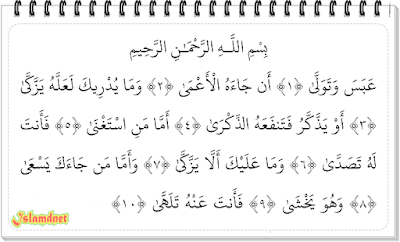 بِسْمِ اللَّـهِ الرَّحْمَـٰنِ الرَّحِيمِ
عَبَسَ وَتَوَلَّىٰ ﴿١﴾ أَن جَاءَهُ الْأَعْمَىٰ ﴿٢﴾ وَمَا يُدْرِيكَ لَعَلَّهُ يَزَّكَّىٰ
﴿٣﴾ أَوْ يَذَّكَّرُ فَتَنفَعَهُ الذِّكْرَىٰ ﴿٤﴾ أَمَّا مَنِ اسْتَغْنَىٰ ﴿٥﴾ فَأَنتَ
لَهُ تَصَدَّىٰ ﴿٦﴾ وَمَا عَلَيْكَ أَلَّا يَزَّكَّىٰ ﴿٧﴾ وَأَمَّا مَن جَاءَكَ يَسْعَىٰ
﴿٨﴾ وَهُوَ يَخْشَىٰ ﴿٩﴾ فَأَنتَ عَنْهُ تَلَهَّىٰ ﴿١٠﴾
Islamdnet